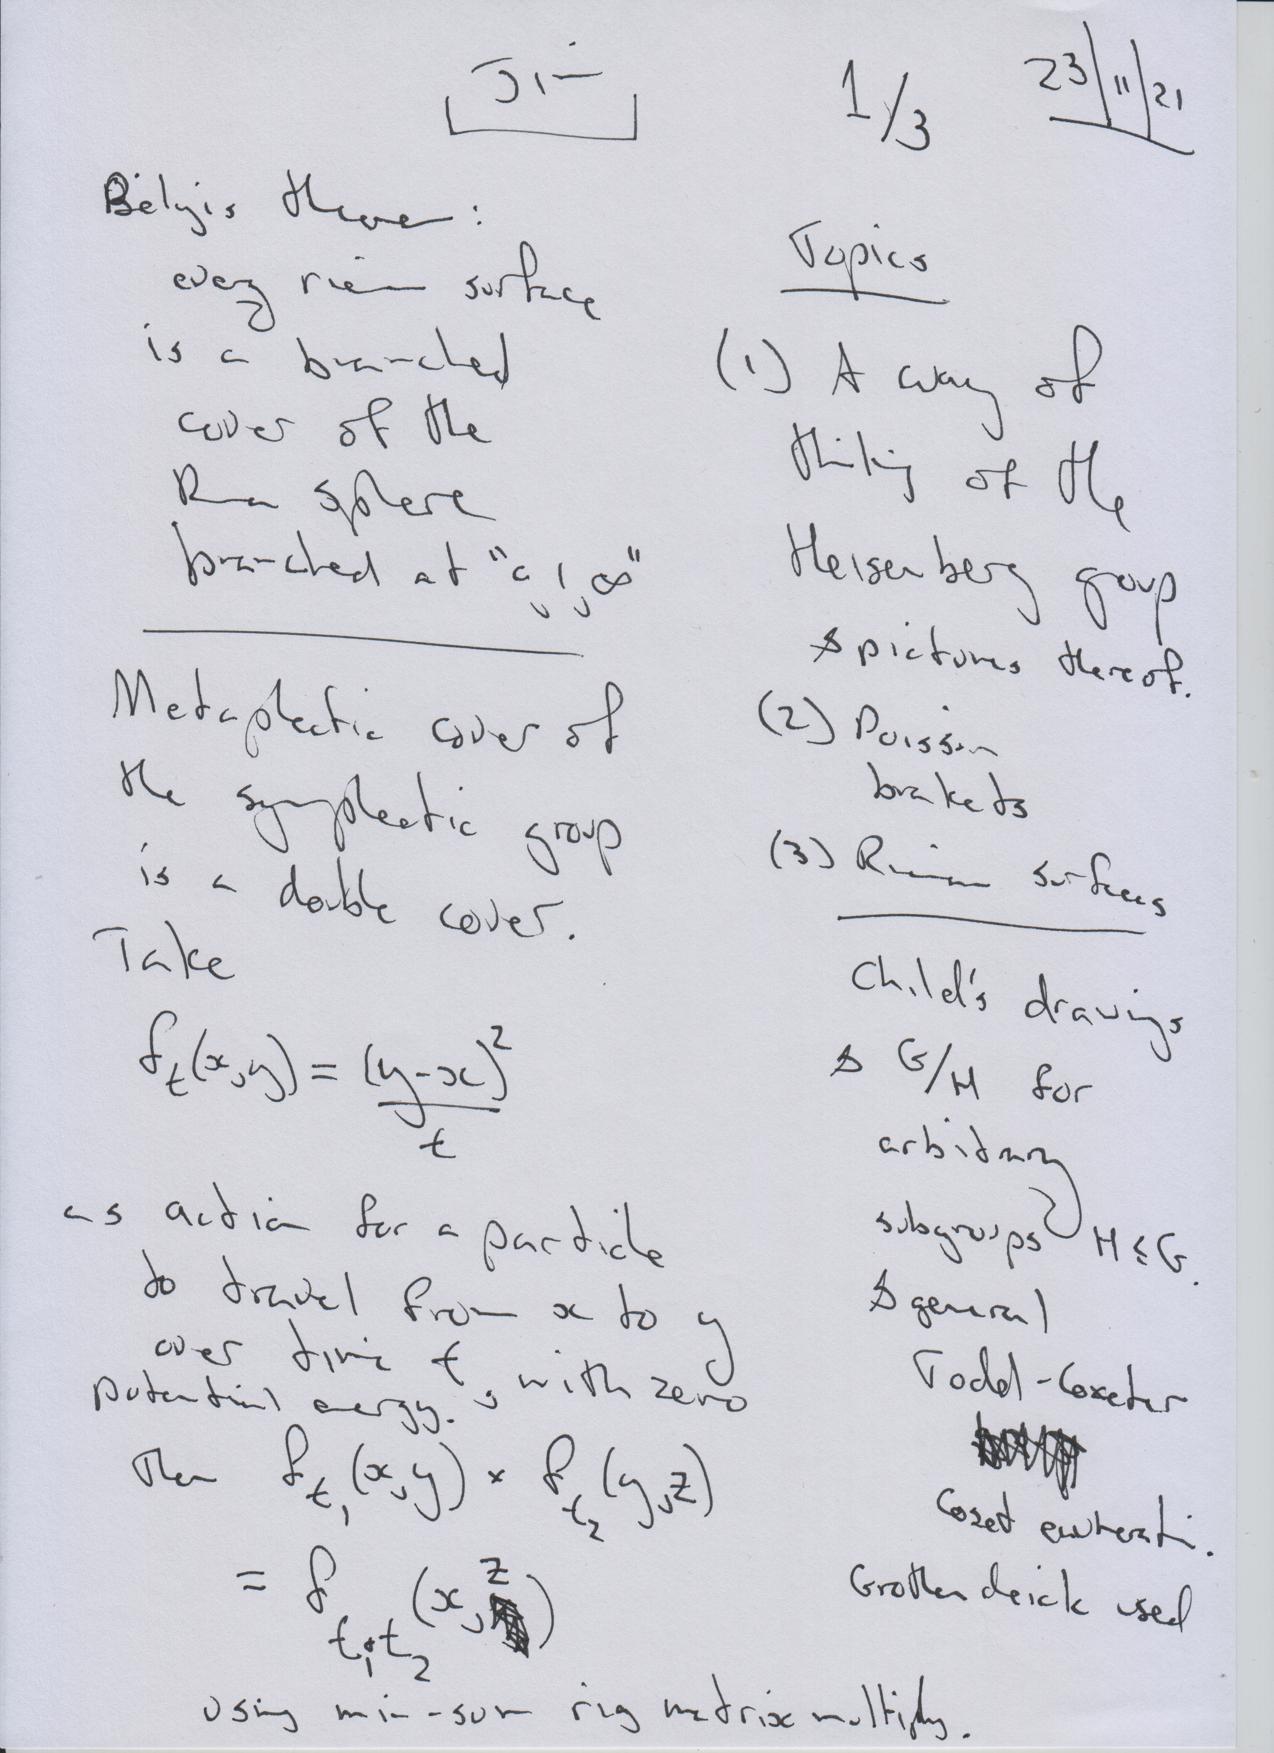 Jim
1/3
23/11/21
Belyis theorem:
every riem surface
is a branched
cover of the
Riem sphere
branched at "0, 1, ∞"
Metaplectic cover of
the symplectic group
is a double cover.
Take
f_t(x,y) = (y-x)²
t
as action for a particle
to travel from x to y
over time t, with zero
potential energy.
Then f_t₁(x,y) * f_t₂(y,z)
= f_t₁+t₂(x,z)
using min-sum rig matrix multiply.
Topics
(1) A way of
thinking of the
Heisenberg group
& pictures thereof.
(2) Poisson
brakets
(3) Riemann surfaces
Child's drawings
& G/H for
arbitrary
subgroups H ≤ G.
& general
Todd-Coxeter
Coset enumeration.
Grothendeick used